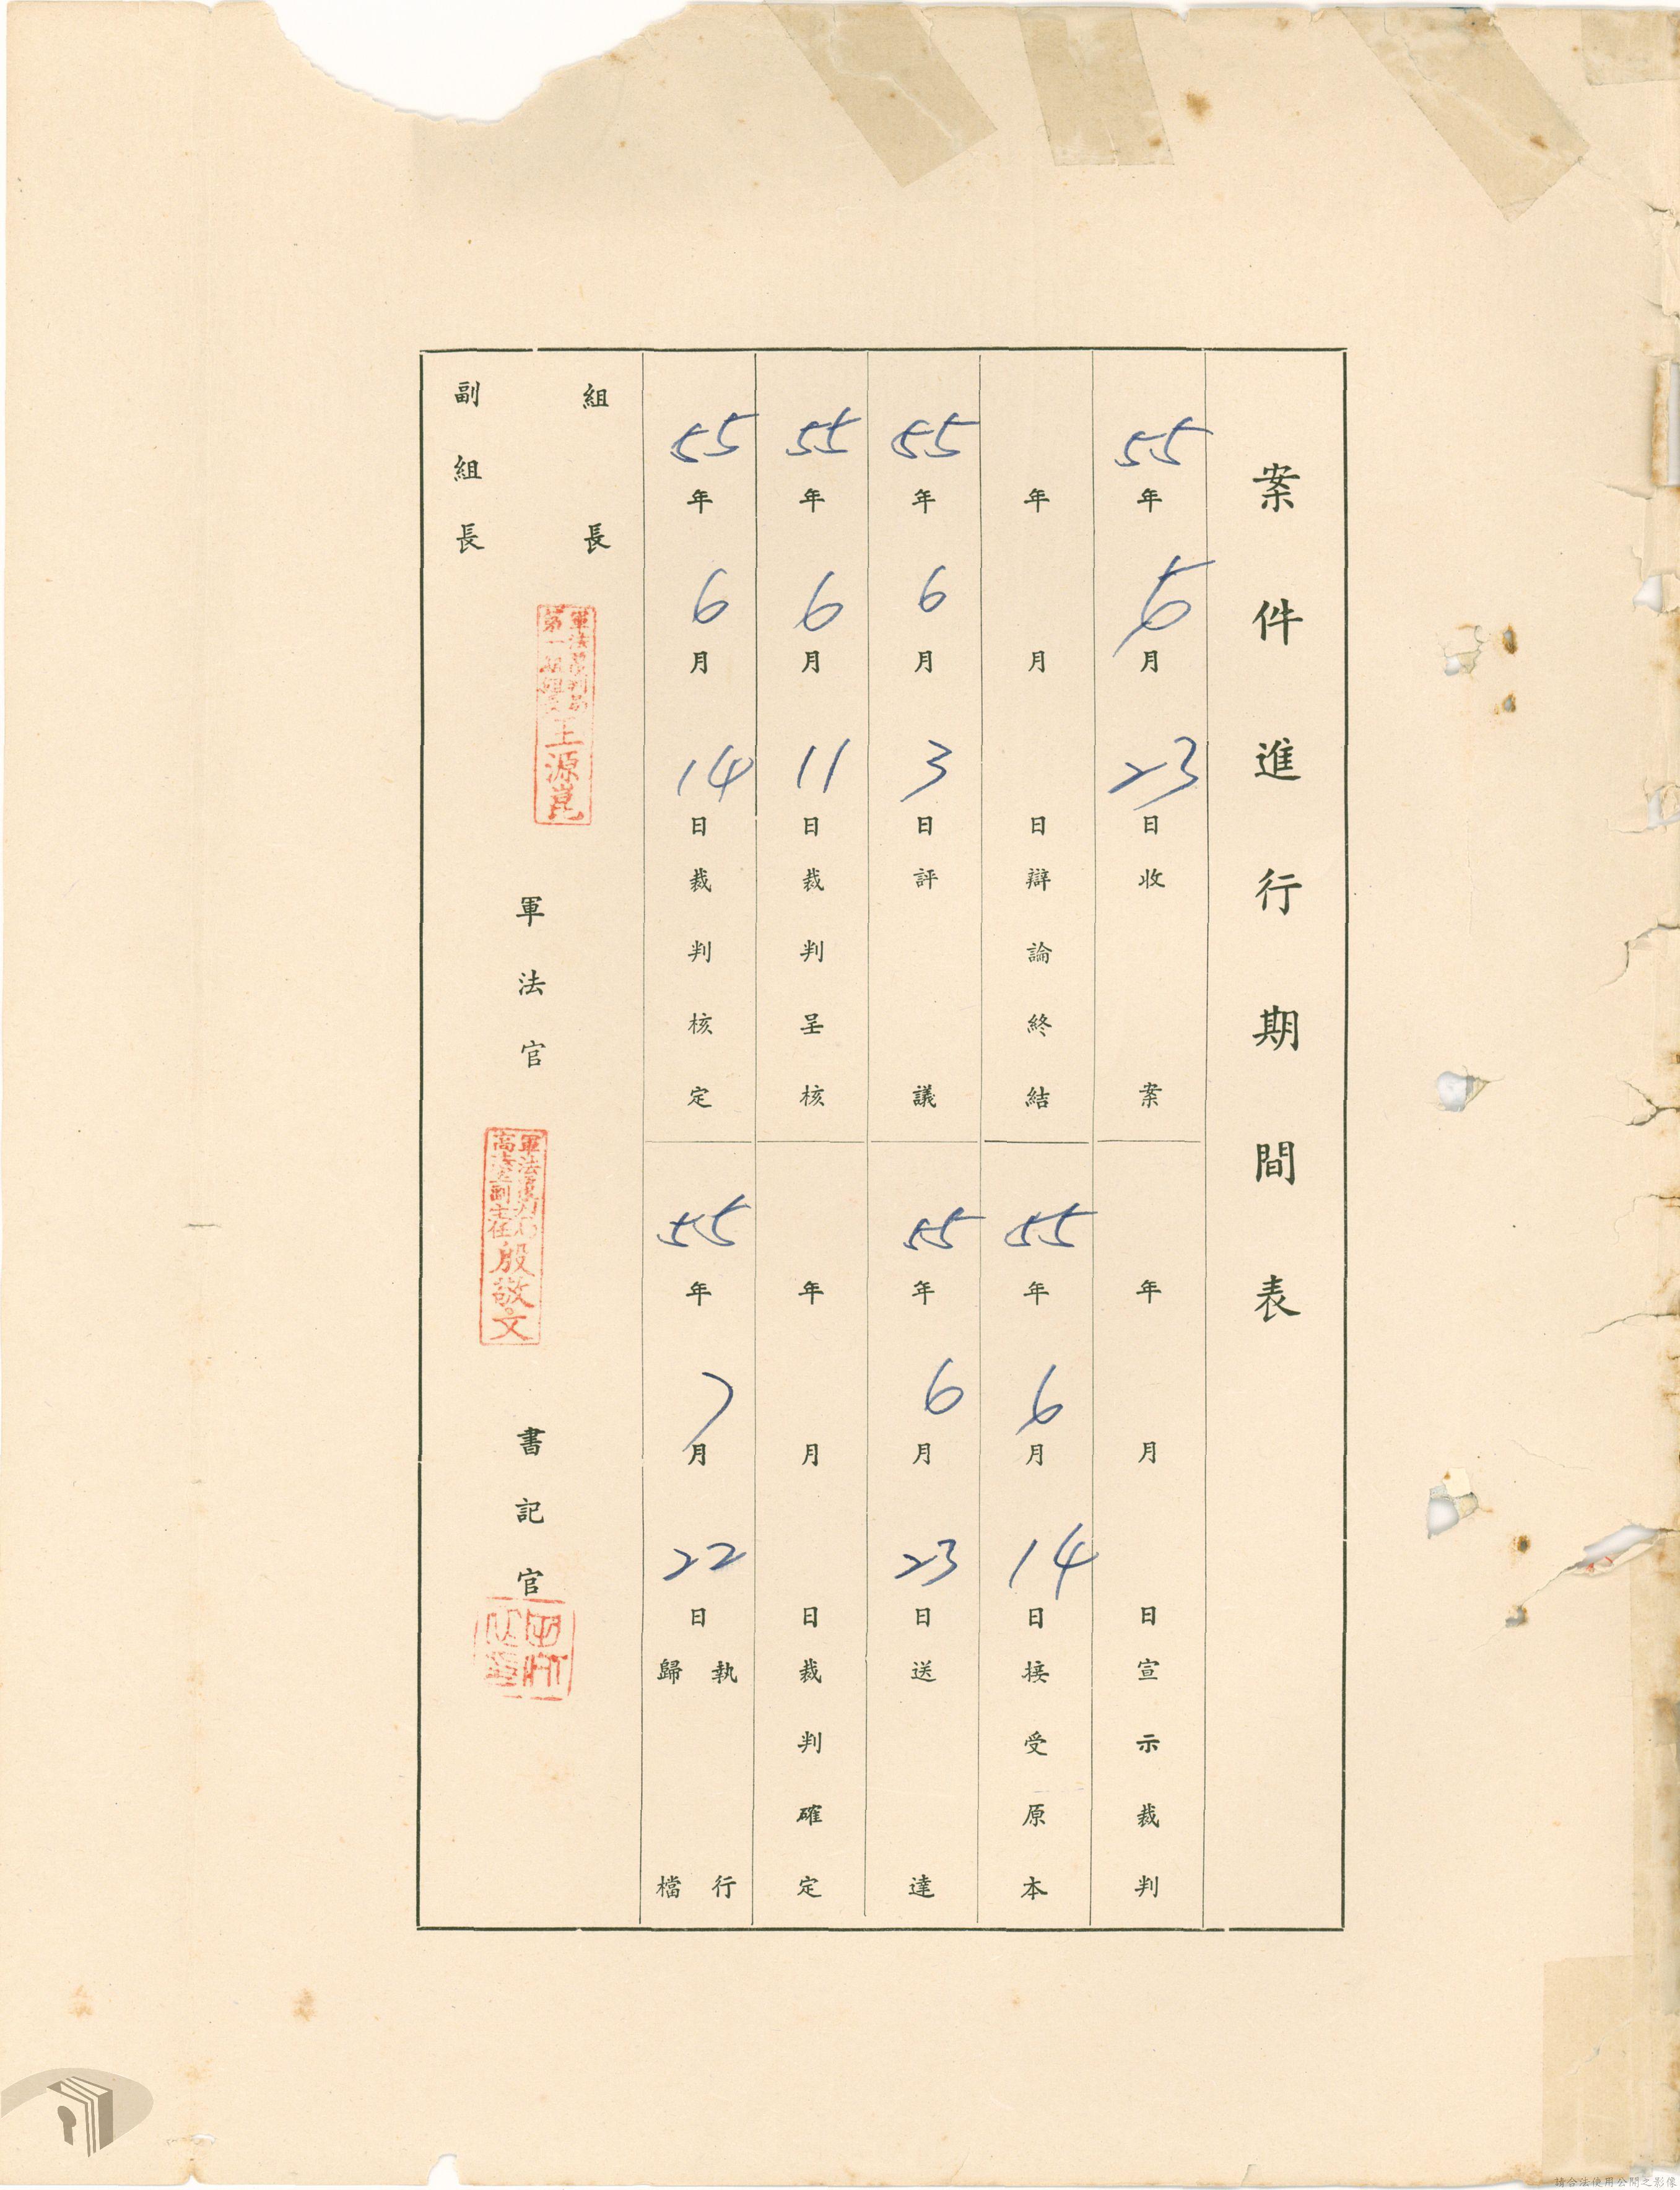 案件進行期間表
55年5月23日收案
年月日宣示裁判
年月日辯論終結
55年6月14日接受原本
55年6月3日評議
55年6月23日送達
55年6月11日裁判呈核
年月日裁判確定
55年6月14日裁判核定
55年7月22日執行歸檔
組長
副組長
王源崑
軍法官
高等副主任殷敬文
書記官
請合法使用公開之影像